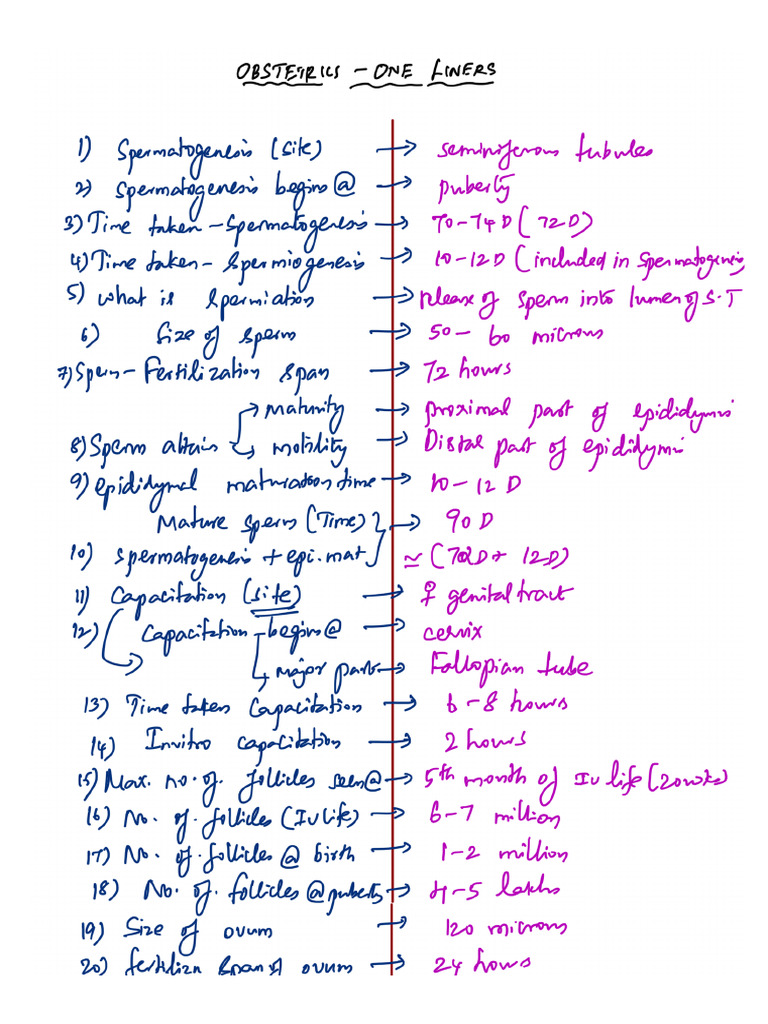 OBSTETRICS - ONE LINERS
1) Spermatogenesis (site) → seminiferous tubules
2) Spermatogenesis begins @ → puberty
3) Time taken - Spermatogenesis → 70-74D (72D)
4) Time taken - Spermiogenesis → 10-12D (included in Spermatogenesis
5) what is Spermiation → release of sperm into lumen of S.T
6) Size of sperm → 50 - 60 microns
7) Sperm - Fertilization span → 72 hours
→ maturity → proximal part of epididymis
8) Sperm attain → motility → Distal part of epididymis
9) epididymal maturation time → 10-12 D
Mature sperm (Time) } → 90 D
10) Spermatogenesis + epi.mat ≃ (72D + 12D)
11) Capacitation (site) → ♀ genital tract
12) Capacitation - begins @ → cervix
↳ major part → Fallopian tube
13) Time taken Capacitation → 6-8 hours
14) Invitro capacitation → 2 hours
15) Max. no. of. follicles seen @ → 5th month of IU life (20wks)
16) No. of. follicles (IU life) → 6-7 million
17) No. of. follicles @ birth → 1-2 million
18) No. of. follicles @ puberty → 4-5 lakhs
19) Size of ovum → 120 microns
20) fertilizn span of ovum → 24 hours